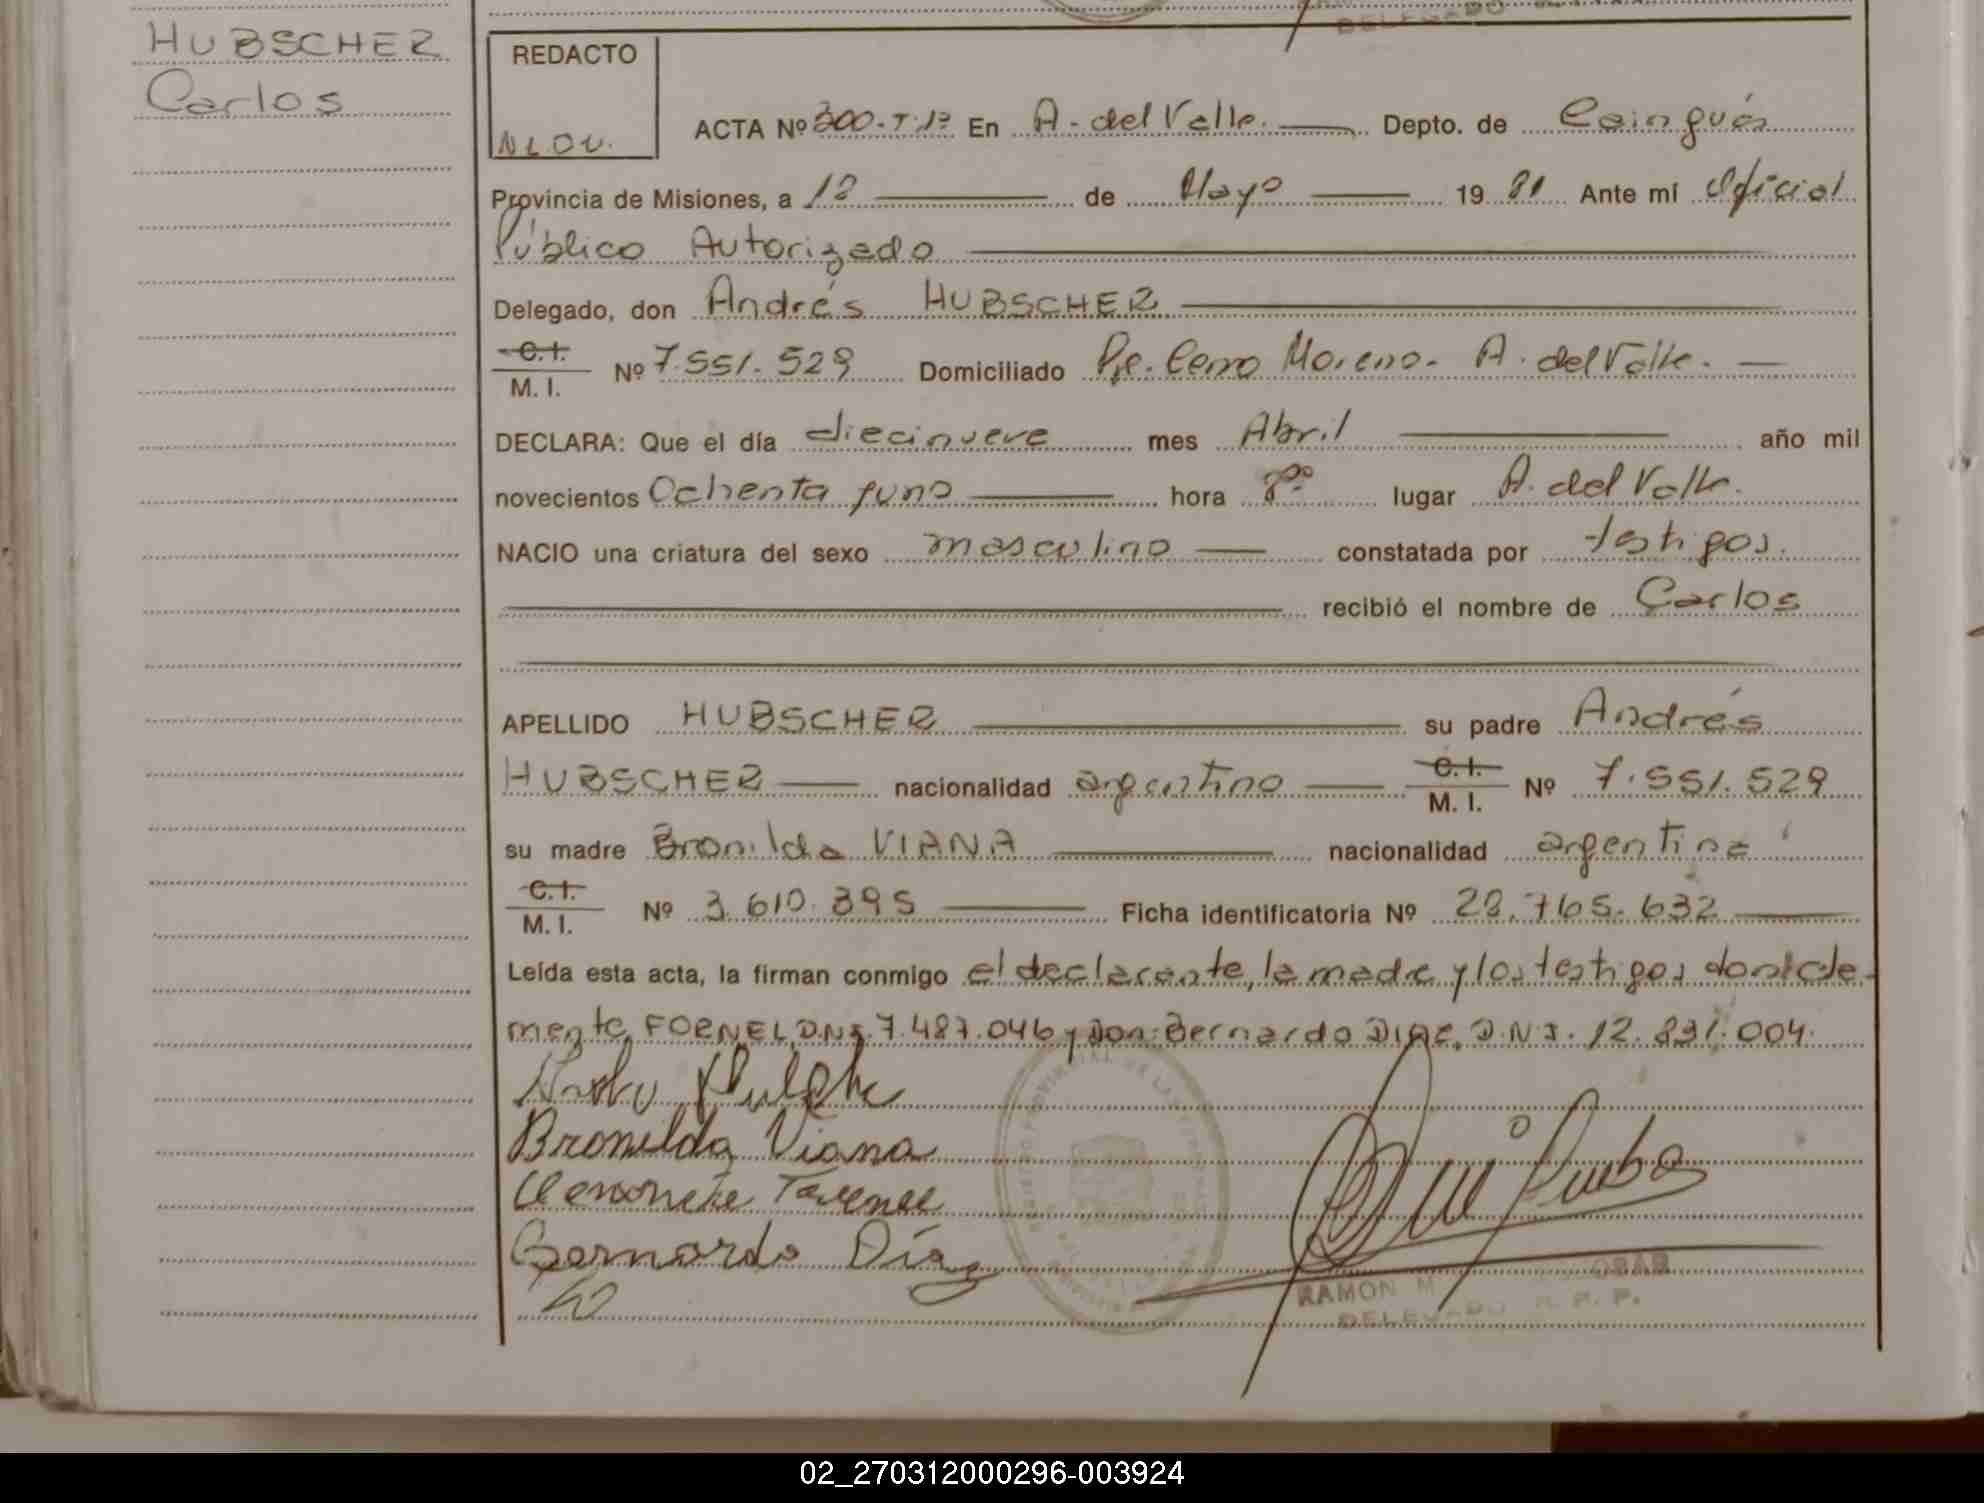 HUBSCHER
Carlos
REDACTO
ACTA Nº 300-T.1º En A. del Valle. Depto. de Cainguás
Provincia de Misiones, a 12 de Mayo 19 81 Ante mí Oficial
Público Autorizado
Delegado, don Andrés HUBSCHER
C.I.
M. I. Nº 7.551.529 Domiciliado Cerro Moreno. A. del Valle.
DECLARA: Que el día diecinueve mes Abril año mil
novecientos Ochenta y uno hora lugar A. del Valle.
NACIO una criatura del sexo masculino constatada por testigos.
recibió el nombre de Carlos
APELLIDO HUBSCHER su padre Andrés
HUBSCHER nacionalidad argentino C.I. M. I. Nº 7.551.529
su madre Bronilda VIANA nacionalidad argentina
C.I.
M. I. Nº 3.610.395 Ficha identificatoria Nº 28.765.632
Leída esta acta, la firman conmigo el declarante, la madre y los testigos
FORNEL, DNI. 7.487.046 y Don: Bernardo DIAZ, D.N.I. 12.831.004.
Bronilda Viana
Bernardo Díaz
RAMON M
DELEGADO R. P. P.
02_270312000296-003924